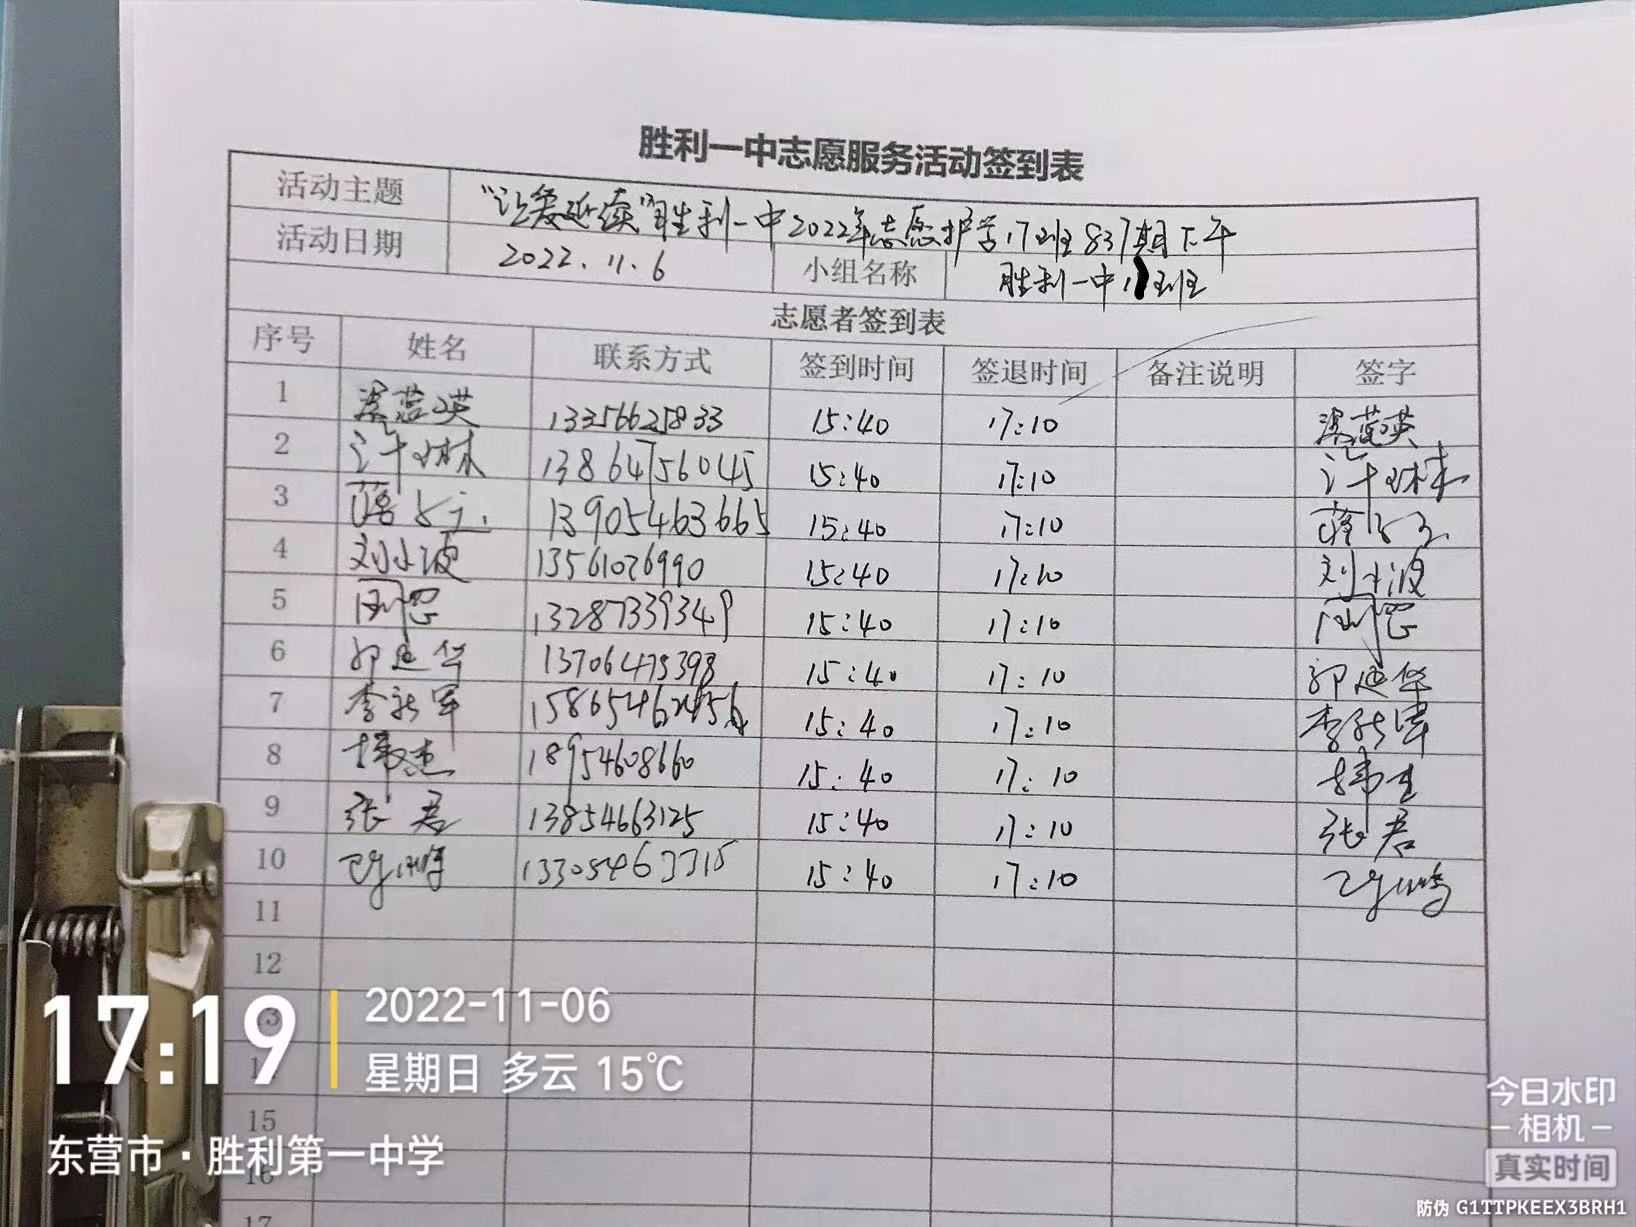 胜利一中志愿服务活动签到表
活动主题 "让爱延续"胜利一中2022年志愿护学17班837期下午
活动日期 2022.11.6 小组名称 胜利一中 班
志愿者签到表
序号 姓名 联系方式 签到时间 签退时间 备注说明 签字
1 13356625833 15:40 17:10
2 许琳 13864756045 15:40 17:10 许琳
3 13905463665 15:40 17:10
4 刘小波 13561026990 15:40 17:10 刘小波
5 13287339349 15:40 17:10
6 郭延华 13706475398 15:40 17:10 郭延华
7 李新军 15:40 17:10 李新军
8 韩杰 18954608660 15:40 17:10 韩杰
9 张君 13854663125 15:40 17:10 张君
10 13305463315 15:40 17:10
11
12
13
15
16
17
17:19
2022-11-06
星期日 多云 15℃
东营市·胜利第一中学
今日水印
-相机-
真实时间
防伪 G1TTPKEEX3BRH1